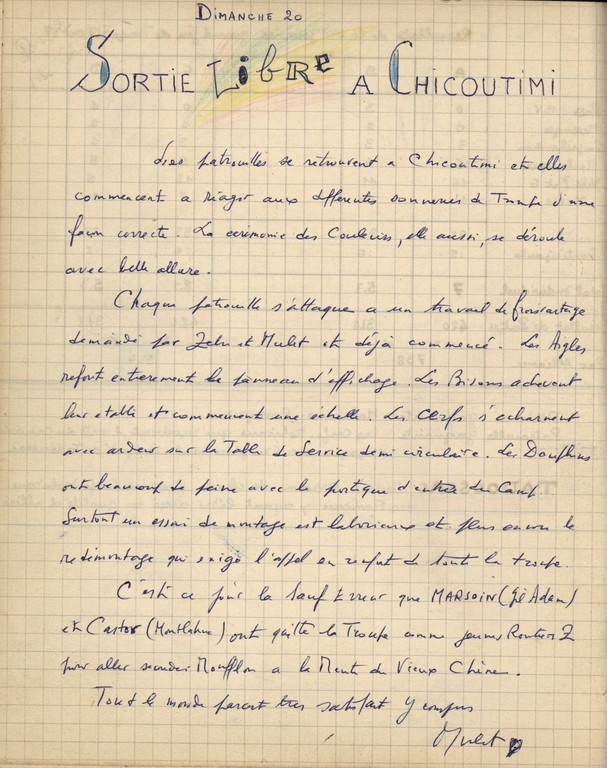 DIMANCHE 20
SORTIE LiBRe A CHICOUTIMI
Les patrouilles se retrouvent a Chicoutimi et elles
commencent a réagir aux differentes sonneries de Troupe d'une
façon correcte. La ceremonie des Couleurs, elle aussi, se déroule
avec belle allure.
Chaque patrouille s'attaque a un travail de froissartage
demandé par et Mulet et déjà commencé. Les Aigles
refont entierement le panneau d'affichage. Les Bisons achevent
leur etabli et commencent une echelle. Les Cerfs s'acharnent
avec ardeur sur la Table de Service demi circulaire. Les Dauphins
ont beaucoup de peine avec le portique d'entrée du Camp
Surtout un essai de montage est laborieux et plus encore le
redémontage qui exige l'appel en renfort de toute la troupe.
C'est ce jour la Sauf Erreur que MARSOIN (Adam)
et Castor ont quitté la Troupe comme jeunes Routiers
pour aller seconder Moufflon a la Meute du Vieux Chêne.
Tout le monde parait tres satisfait y compris
Mulet